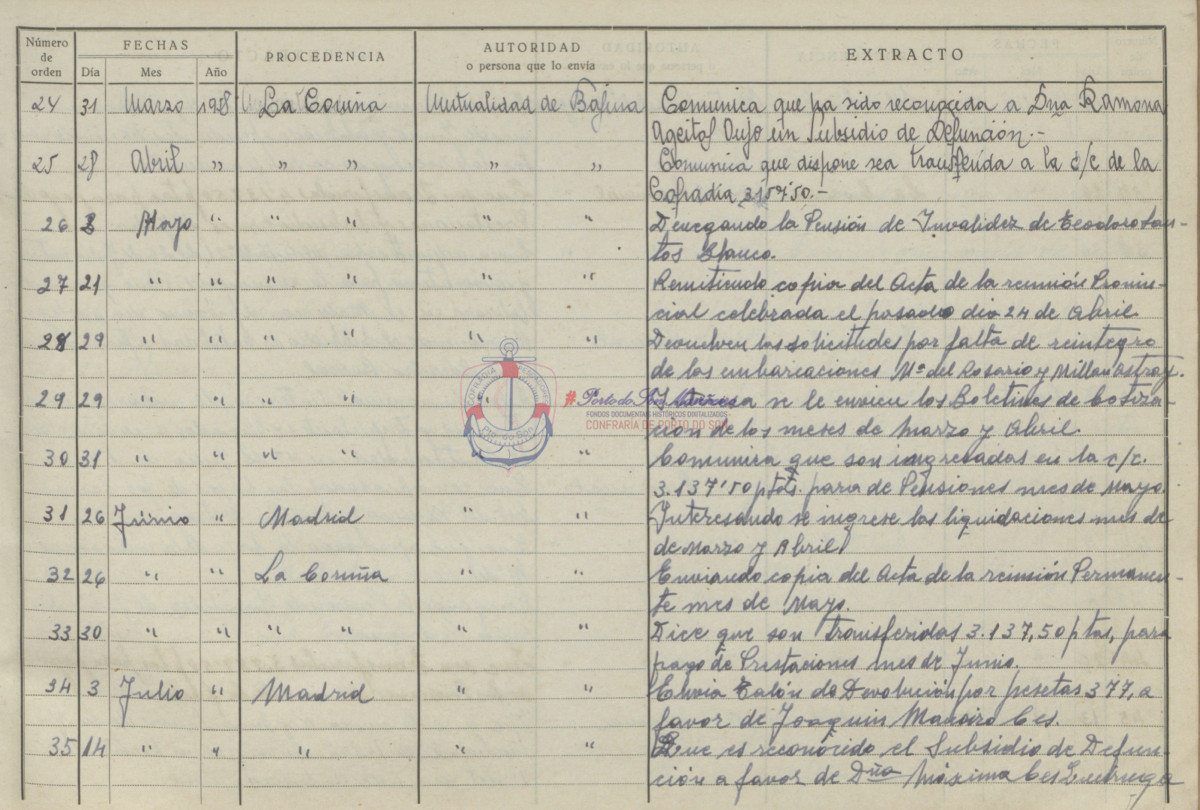 Número de orden FECHAS Día Mes Año PROCEDENCIA AUTORIDAD o persona que lo envía EXTRACTO
24 31 Marzo 1958 La Coruña Mutualidad de Comunica que ha sido reconocida a Dña Ramona
Ageitos Oujo un Subsidio de Defunción.-
25 28 Abril " " " " " Comunica que dispone sea transferida a la c/c de la
Cofradía
26 3 Mayo " " " " " Denegando la Pensión de Invalidez de Teodoro San-
tos Blanco.
27 21 " " " " " " Remitiendo copia del Acta de la reunión Provin-
cial celebrada el pasado dia 24 de Abril
28 29 " " " " " " Devuelven las solicitudes por falta de reintegro
de las embarcaciones Mª del Rosario y Millan Astray.
29 29 " " " " " se le envien los Boletines de cotiza-
ción de los meses de Marzo y Abril
30 31 " " " " " " Comunica que son ingresadas en la c/c.
3.137'50 ptas. para de Pensiones mes de Mayo.
31 26 Júnio " Madrid " " Interesando se ingrese las liquidaciones mes de
de Marzo y Abril
32 26 " " La Coruña " " Enviando copia del Acta de la reunión Permanen-
te mes de Mayo.
33 30 " " " " " " Dice que son transferidas 3.137,50 ptas, para
pago de Prestaciones mes de Junio.
34 3 Julio " Madrid " " Envia Talón de Devolución por pesetas 377, a
favor de Joaquin Maneiro Ces.
35 14 " " " " " Que es reconocido el Subsidio de Defun-
ción a favor de Dña Máxima Ces
COFRADÍA PESCADORES
Pto. do Son
#Porto do Son
FONDOS DOCUMENTAIS HISTÓRICOS DIGITALIZADOS
CONFRARÍA DE PORTO DO SON